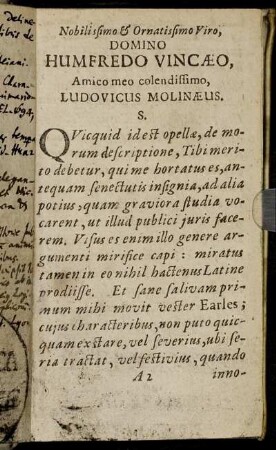 Nobilissimo & Ornatissimo Viro,
DOMINO
HUMFREDO VINCÆO,
Amico meo colendissimo,
LUDOVICUS MOLINÆUS.
S.
QVicquid id est opellæ, de mo-
rum descriptione, Tibi meri-
to debetur, qui me hortatus es, an-
tequam senectutis insignia, ad alia
potius, quam graviora studia vo-
carent, ut illud publici juris face-
rem. Visus es enim illo genere ar-
gumenti mirifice capi: miratus
tamen in eo nihil hactenus Latine
prodiisse. Et sane salivam pri-
mum mihi movit vester Earles;
cujus characteribus, non puto quic-
quam exstare, vel severius, ubi se-
ria tractat, vel festivius, quando
A2 inno-